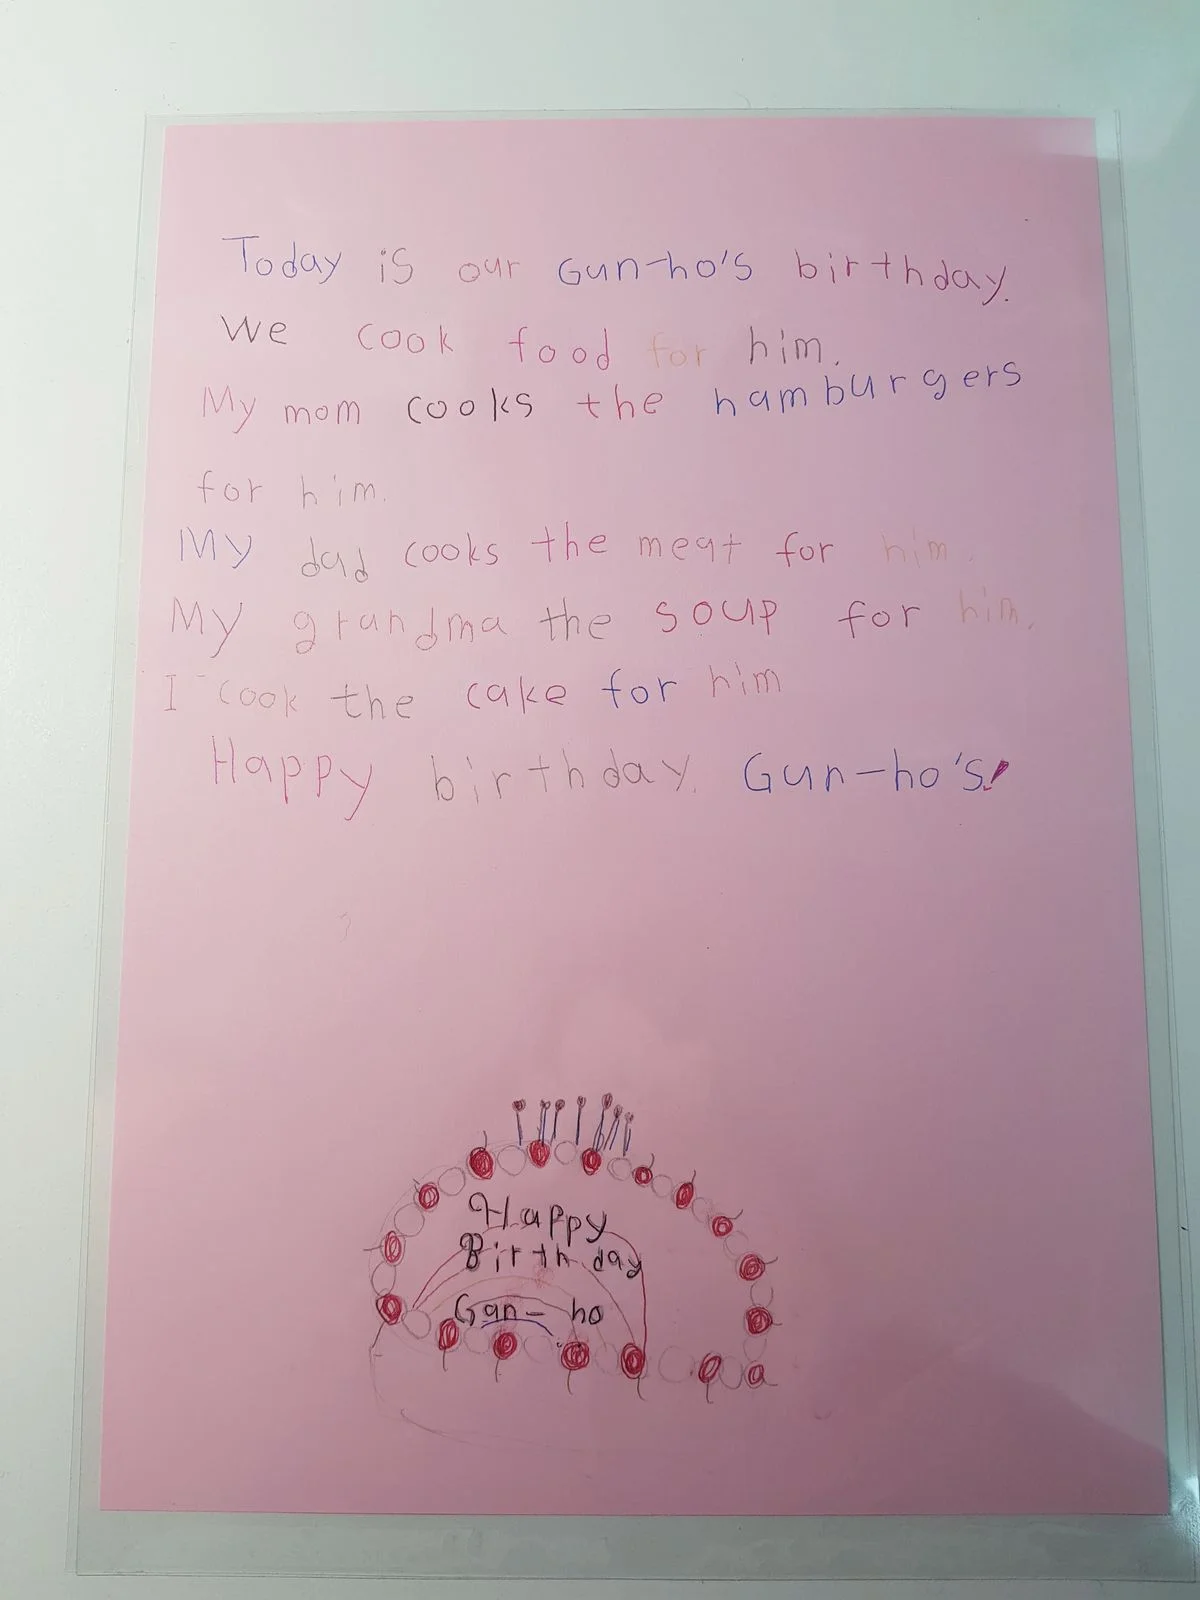 Today is our Gun-ho's birthday.
We cook food for him.
My mom cooks the hamburgers
for him.
My dad cooks the meat for him.
My grandma the soup for him.
I cook the cake for him
Happy birthday. Gun-ho's!
Happy
Birthday
Gan-ho